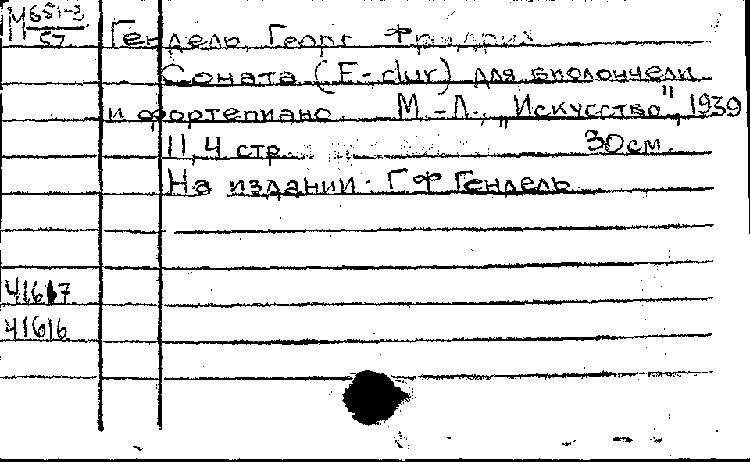 М 651-3
57
Гендель, Георг Фридрих
Соната (F-dur) для виолончели
и фортепиано. М.-Л., „Искусство", 1939
11, 4 стр. 30 см.
На издании: Г Ф Гендель
41617
41616